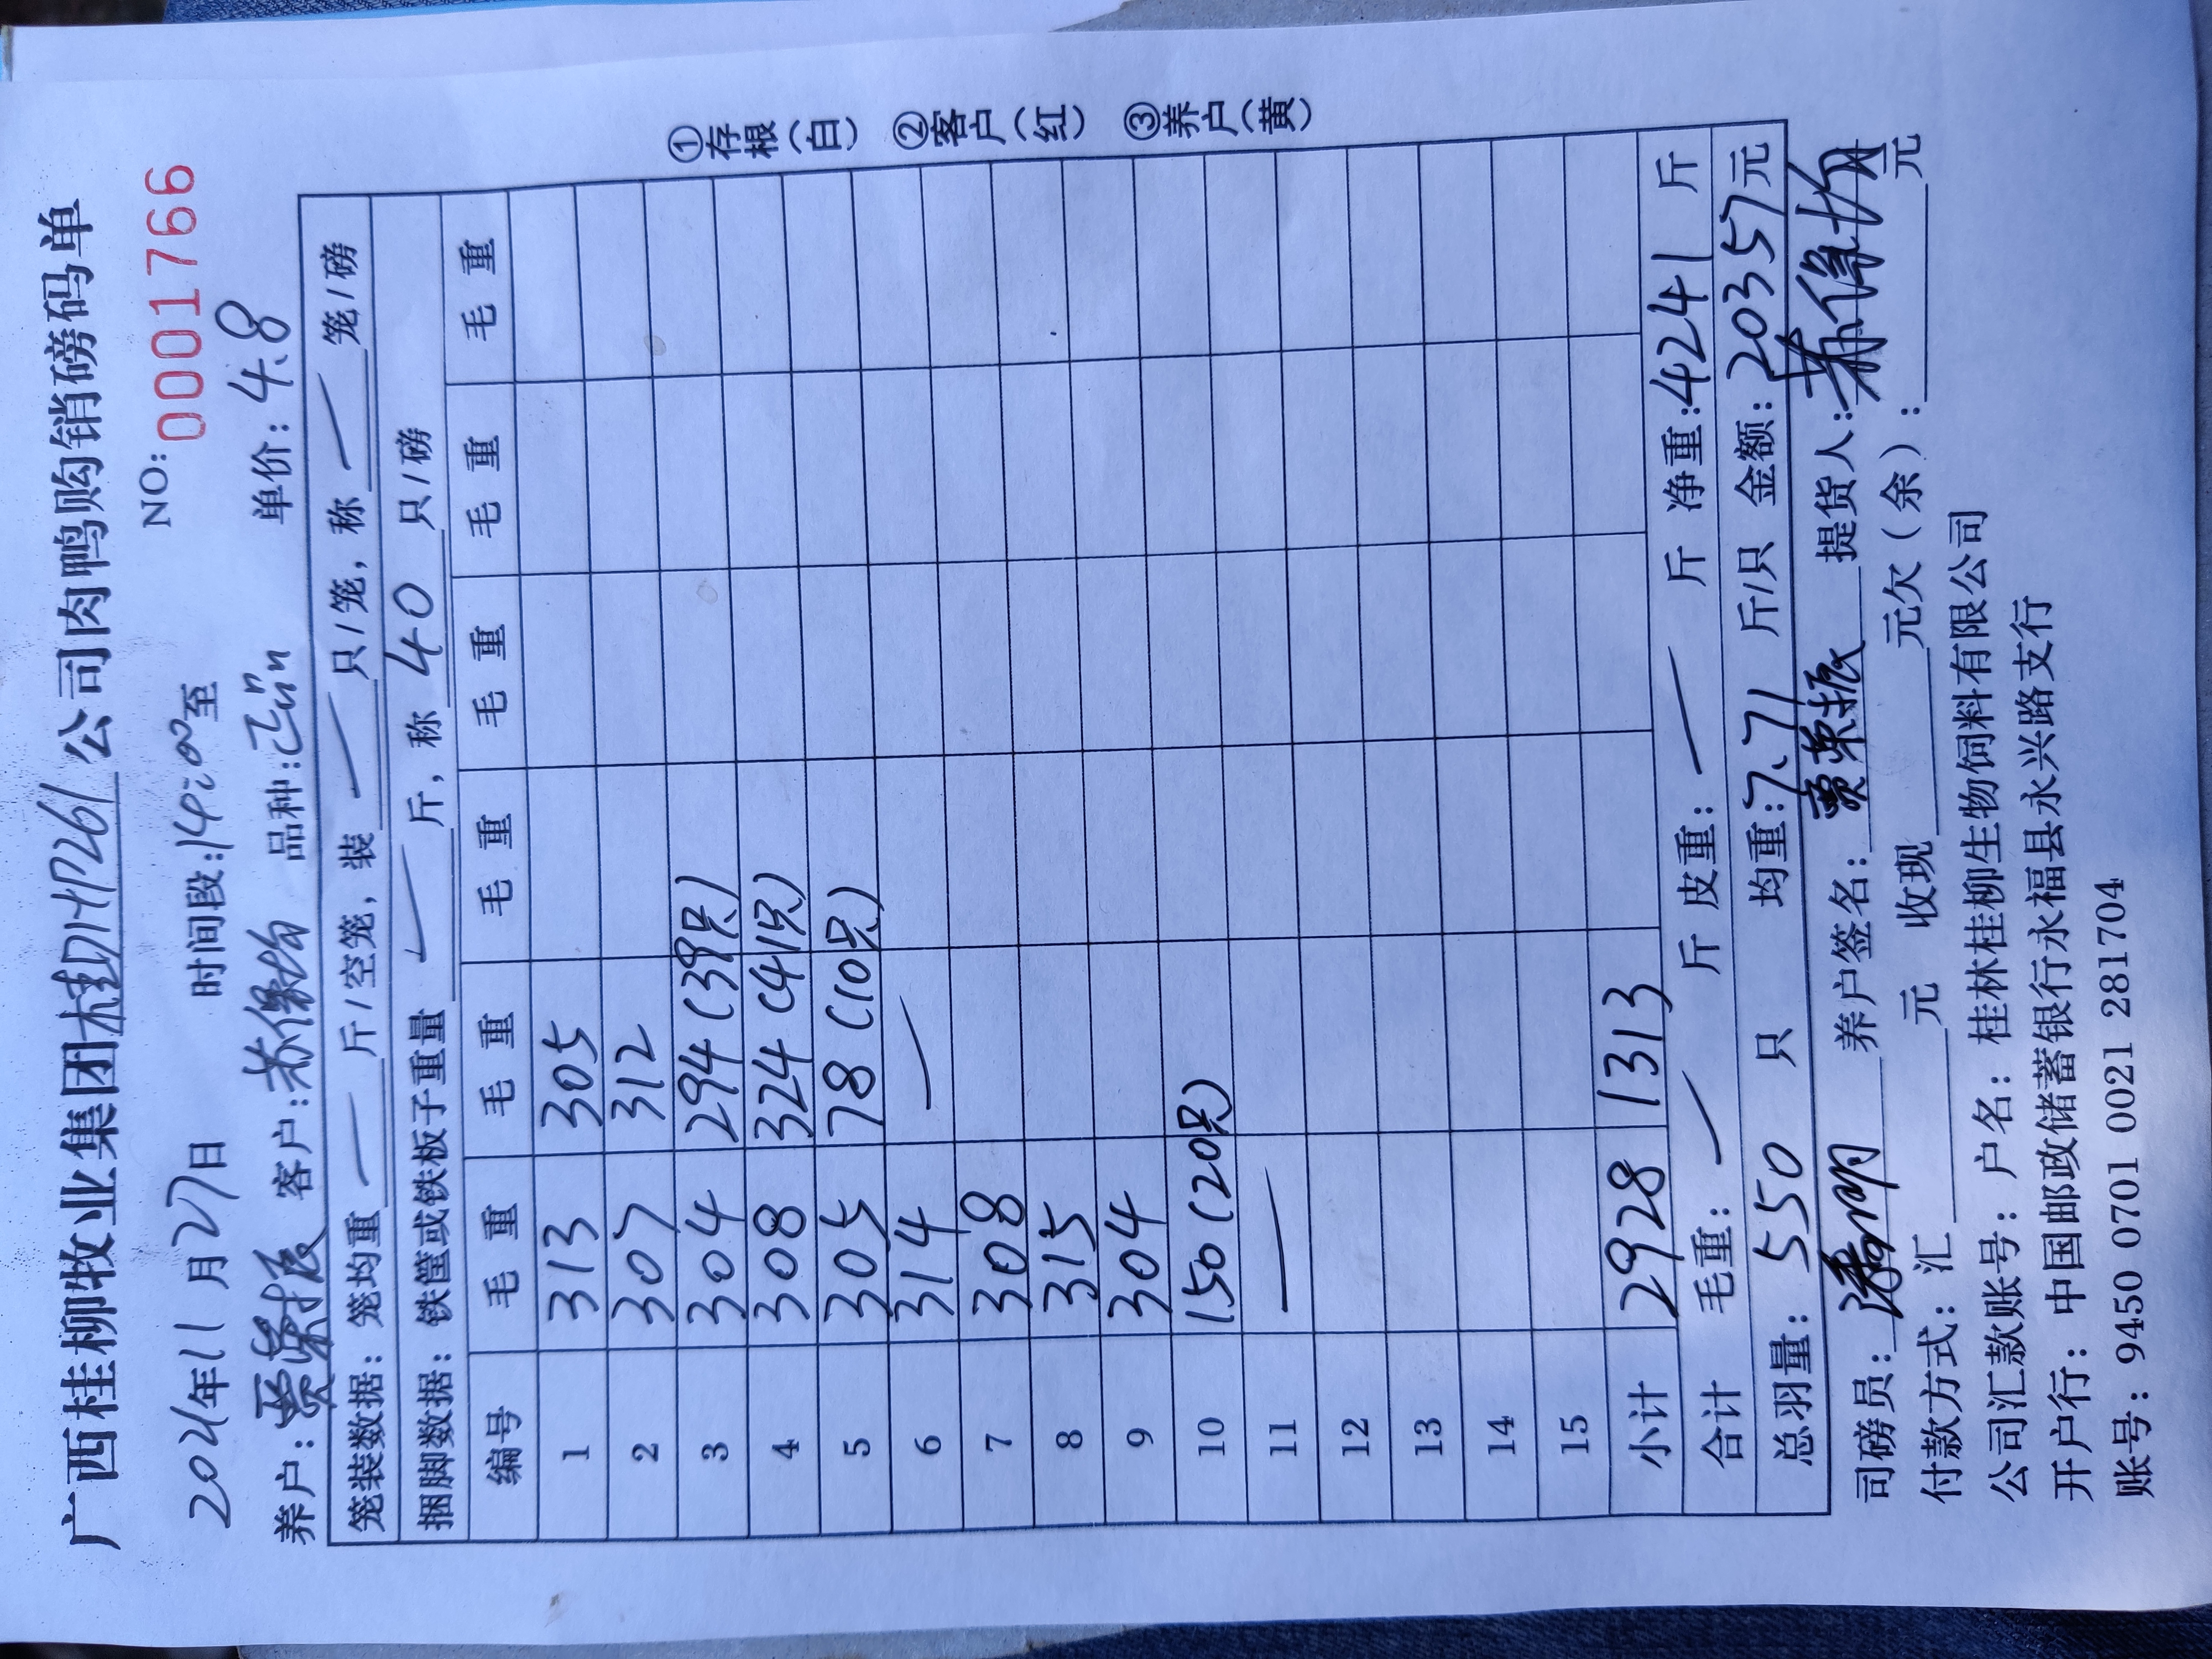 广西桂柳牧业集团桂DHP261公司肉鸭购销磅码单
NO: 0001766
2021年11月27日 时间段:14:00至
养户:贾荣振 客户: 品种: 单价:4.8
笼装数据: 笼均重 — 斤/空笼, 装 — 只/笼, 称 — 笼/磅
捆脚数据: 铁筐或铁板子重量 — 斤, 称 40 只/磅
编号 毛重 毛重 毛重 毛重 毛重 毛重
1 313 305
2 307 312
3 304 294 (39只)
4 308 324 (41只)
5 305 78 (10只)
6 314 —
7 308
8 315
9 304
10 150 (20只)
11 —
12
13
14
15
小计 2928 1313
合计 毛重: — 斤 皮重: — 斤 净重:4241 斤
总羽量: 550 只 均重:7.71 斤/只 金额:20357元
司磅员: 养户签名:贾荣振 提货人:
付款方式: 汇 元 收现 元欠(余): 元
公司汇款账号: 户名: 桂林桂柳生物饲料有限公司
开户行: 中国邮政储蓄银行永福县永兴路支行
账号: 9450 0701 0021 281704
①存根(白) ②客户(红) ③养户(黄)